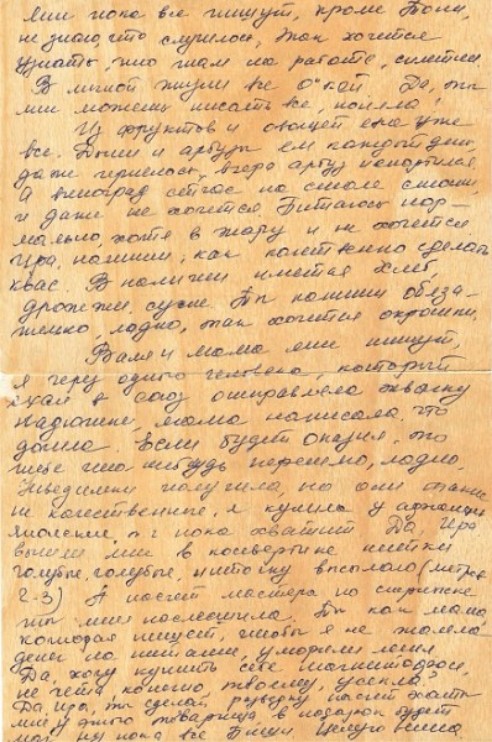 Мне пока все пишут, кроме Тони,
не знаю, что случилось, так хочется
узнать, что там на работе, сплетни.
В личной жизни все О'кей. Да, ты
мне можешь писать все, поняла!
Из фруктов и овощей ела уже
все. Дыни и арбузы ем каждый день,
даже вчера арбуз испортился
А виноград сейчас на столе стоит,
и даже не хочется. Питаюсь нор-
мально, хотя в жару и не хочется.
Ира, напиши, как конкретно сделать
квас. В наличии имеется хлеб,
дрожжи сухие. Ты напиши обяза-
тельно, ладно, так хочется окрошки.
Валя и мама мне пишут,
я через одного человека, который
ехал в союз отправляла
мама написала, что
дошла. Если будет оказия, то
тебе что нибудь перешлю, ладно.
получила, но они такие
не качественные, я купила у
японские, т.ч пока хватит. Да, Ира
вышли мне в конверте нитки
голубые, голубые, ниточку высылаю (метров
2-3) А насчет мастера по стрижке
ты меня насмешила. Ты как мама
которая пишет, чтобы я не жалела
денег на питание, уморили меня.
Да, хочу купить себе магнитофон,
не чета, конечно, твоему, усекла?
Да, Ира, ты сделай разведку насчет
мне у этого товарища, в подарок будет
ну пока все Пиши. Целую Нина.